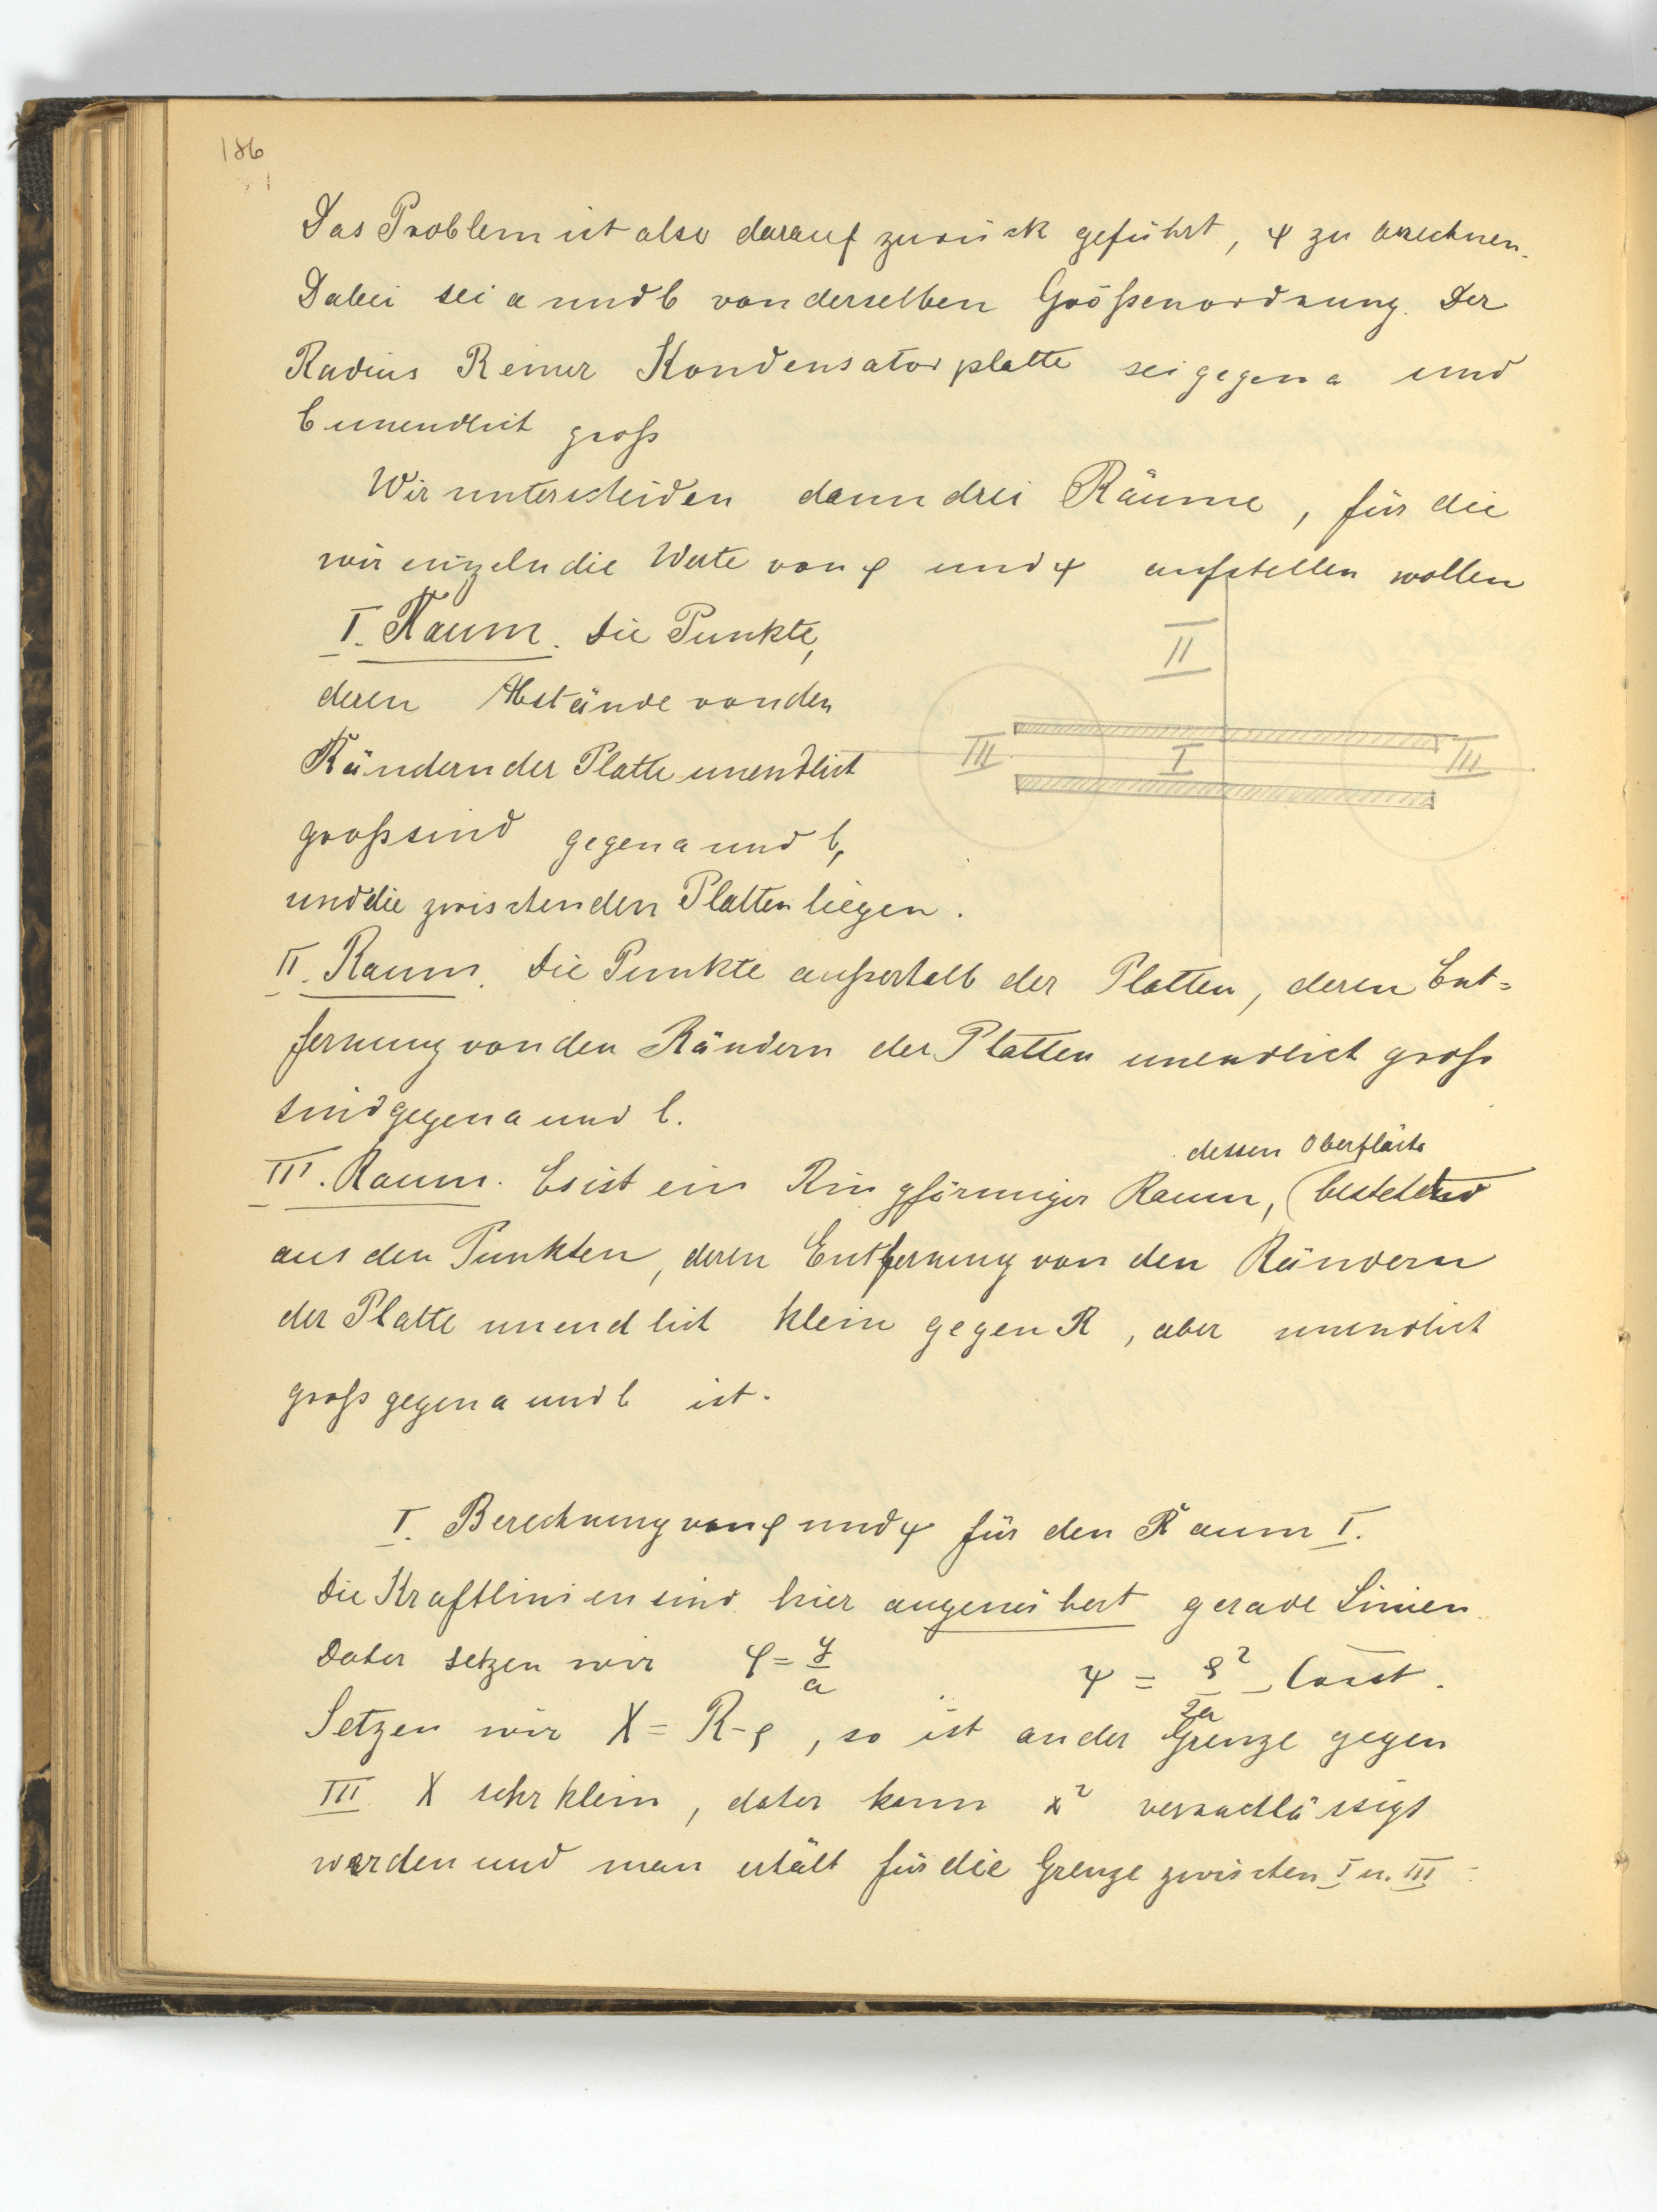 186
Das Problem ist also darauf zurück geführt, ψ zu berechnen.
Dabei sei a und b von derselben Größenordnung. Der
Radius R einer Kondensatorplatte sei gegen a und
b unendlich groß
Wir unterscheiden dann drei Räume, für die
wir einzeln die Werte von φ und ψ aufstellen wollen
I. Raum. Die Punkte,
deren Abstände von den
Rändern der Platte unendlich
groß sind gegen a und b,
und die zwischen den Platten liegen.
II
III I III
II. Raum. Die Punkte außerhalb der Platten, deren Ent=
fernung von den Rändern der Platten unendlich groß
sind gegen a und b.
dessen Oberfläche
III. Raum. Es ist ein Ringförmiger Raum, (bestehend
aus den Punkten, deren Entfernung von den Rändern
der Platte unendlich klein gegen R, aber unendlich
groß gegen a und b ist.
I. Berechnung von φ und ψ für den Raum I.
Die Kraftlinien sind hier angenähert gerade Linien
Daher setzen wir φ = y/a ψ = ρ²/2a – Const.
Setzen wir X = R-ρ, so ist an der Grenze gegen
III X sehr klein, daher kann x² vernachlässigt
werden und man erhält für die Grenze zwischen I u. III :